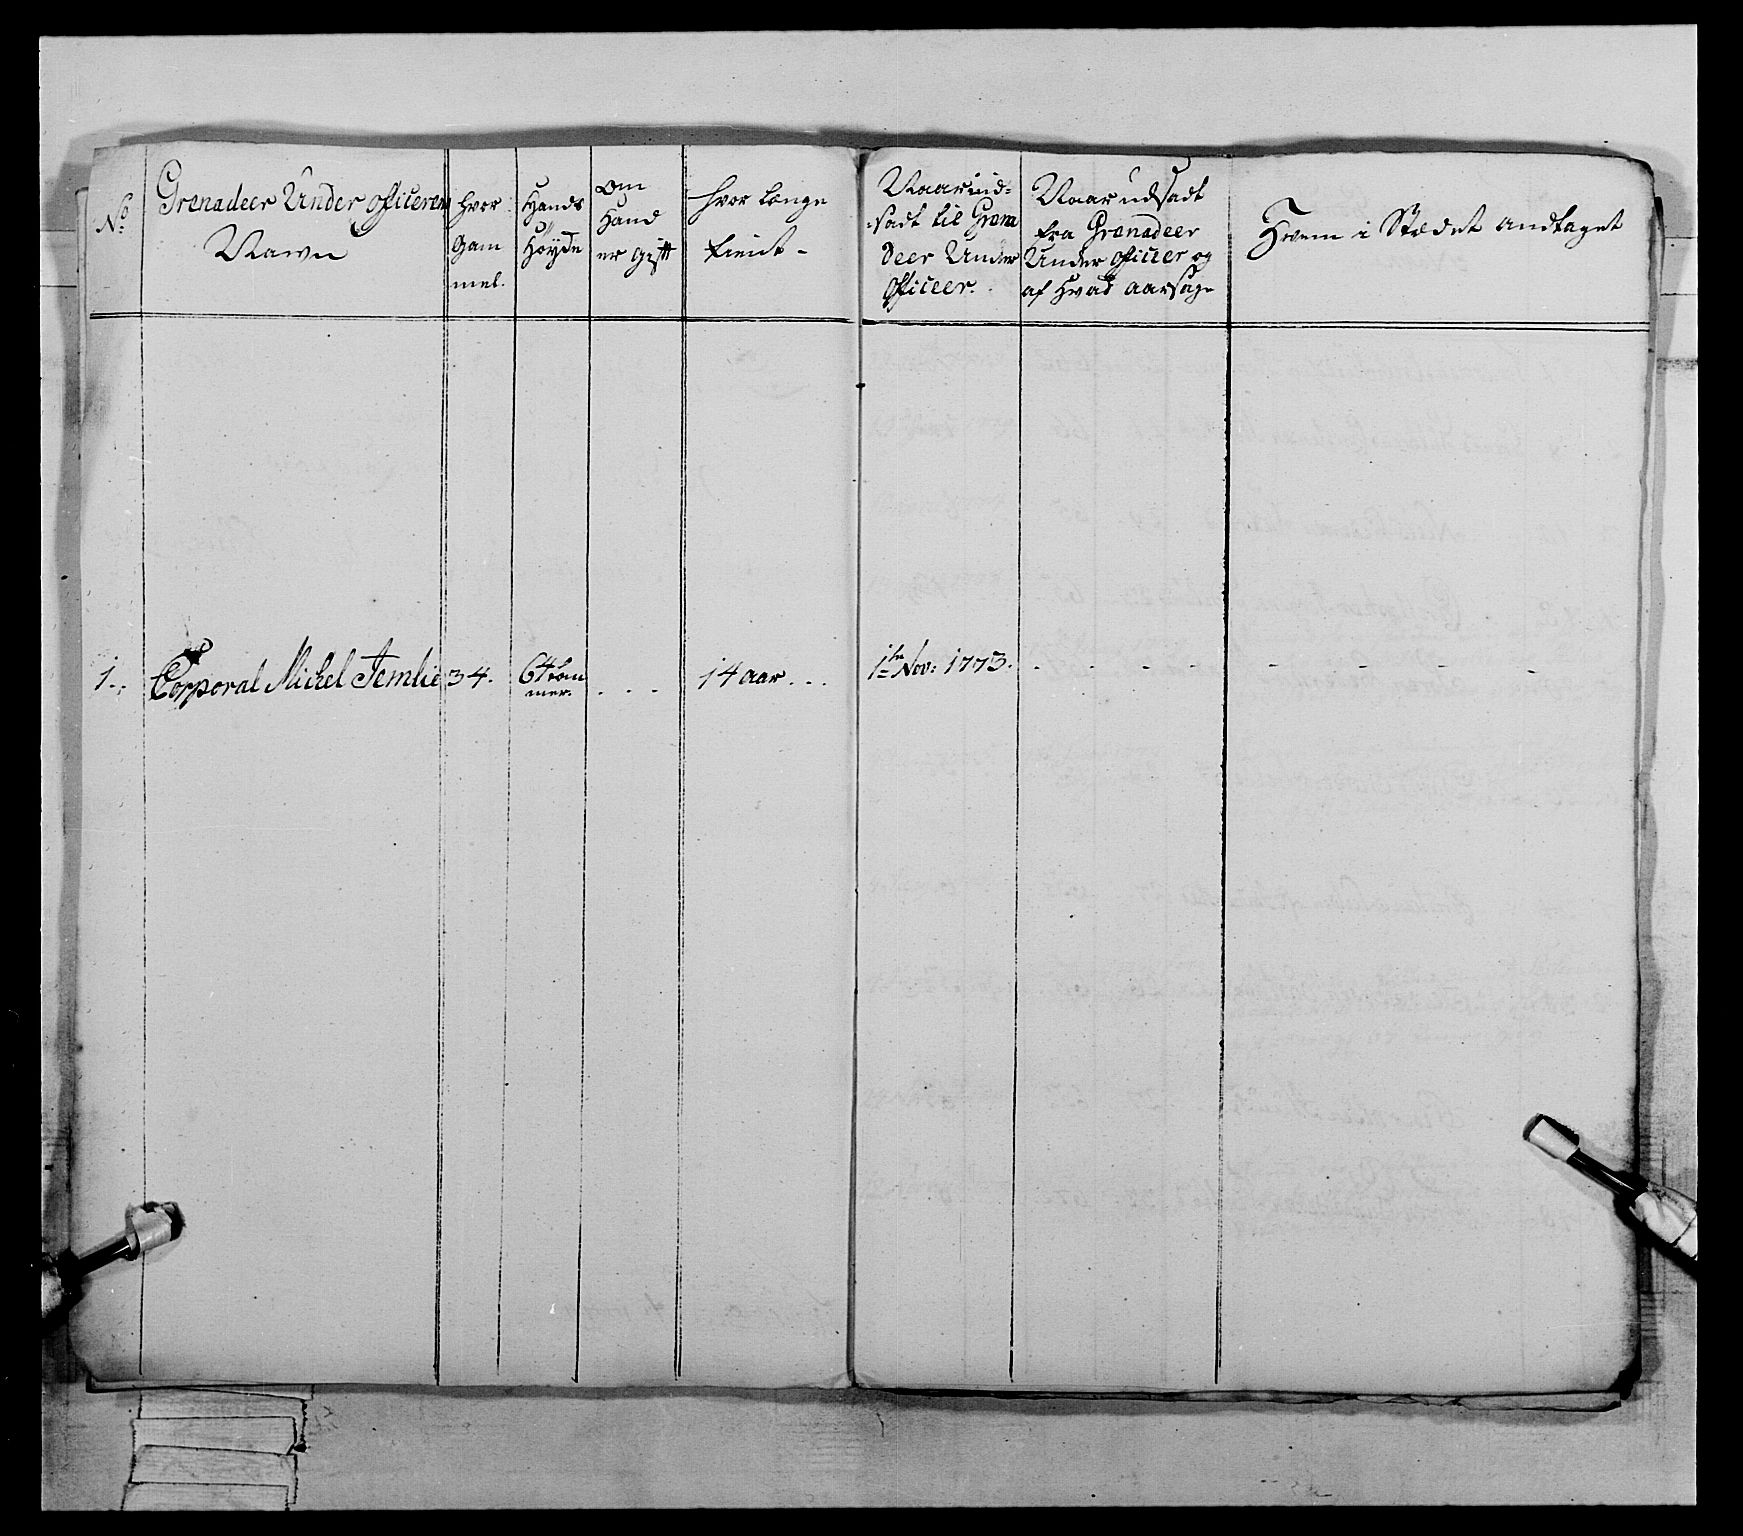 No
Grenadeer Under officerens
Navn
Hvor
Gam
mel.
Hands
Höyde
Om
Hand
er gift
Hvor længe
tient -
Naar ind=
=sadt til Grena
deer Under
officeer.
Naar udsadt
fra Grenadeer
Under officeer og
af Hvad aarsage
Hvem i Stædet andtaget
1.
Corporal Michel Jemlie
34.
64 tom
mer.
. . .
14 aar . . .
1ste Nov: 1773.